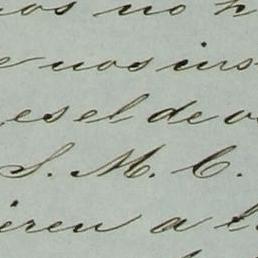 os no h
e nos ins
es el de o
S. M. C.
ieren a l